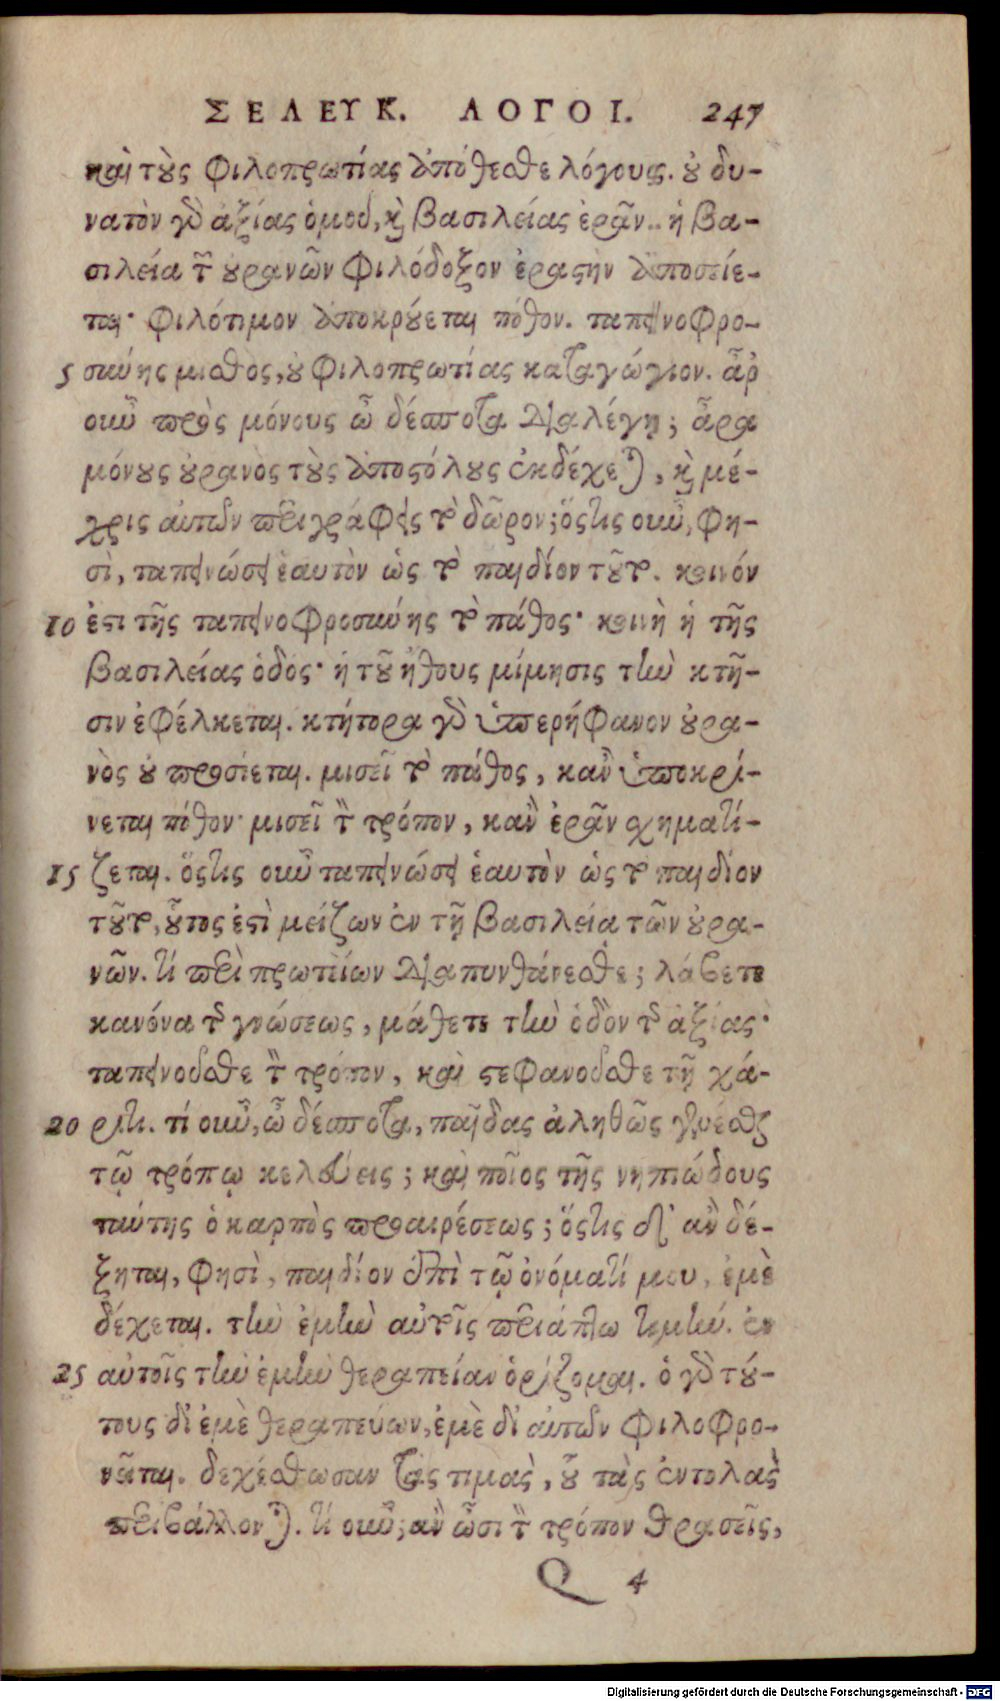 ΣΕΛΕΥΚ. ΛΟΓΟΙ. 247
καὶ τοὺς φιλοπρωτίας ἀπόθεσθε λόγους. οὐ δυ-
νατὸν γὰρ ἀξίας ὁμοῦ, καὶ βασιλείας ἐρᾶν.. ἡ βα-
σιλεία τῶν οὐρανῶν φιλόδοξον ἐραστὴν ἀποσείε-
ται· φιλότιμον ἀποκρούεται πόθον. ταπεινοφρο-
5 σύνης μισθὸς, οὐ φιλοπρωτίας καταγώγιον. ἆρ
οὖν πρὸς μόνους ὦ δέσποτα διαλέγῃ; ἆρα
μόνους οὐρανὸς τοὺς ἀποστόλους ἐκδέχεται, καὶ μέ-
χρις αὐτῶν περιγράφεις τὸ δῶρον; ὅστις οὖν, φη-
σὶ, ταπεινώσει ἑαυτὸν ὡς τὸ παιδίον τοῦτο. κοινόν
10 ἐστι τῆς ταπεινοφροσύνης τὸ πάθος· κοινὴ ἡ τῆς
βασιλείας ὁδός· ἡ τοῦ ἤθους μίμησις τὴν κτῆ-
σιν ἐφέλκεται. κτήτορα γὰρ ὑπερήφανον οὐρα-
νὸς οὐ προσίεται. μισεῖ τὸ πάθος, κἂν ὑποκρί-
νεται πόθον· μισεῖ τὸν τρόπον, κἂν ἐρᾶν σχηματί-
15 ζεται. ὅστις οὖν ταπεινώσει ἑαυτὸν ὡς τὸ παιδίον
τοῦτο, οὗτος ἐστὶ μείζων ἐν τῇ βασιλείᾳ τῶν οὐρα-
νῶν. τί περὶ πρωτείων διαπυνθάνεσθε; λάβετε
κανόνα τῆς γνώσεως, μάθετε τὴν ὁδὸν τῆς ἀξίας·
ταπεινοῦσθε τὸν τρόπον, καὶ στεφανοῦσθε τῇ χά-
20 ριτι. τί οὖν, ὦ δέσποτα, παῖδας ἀληθῶς γενέσθαι
τῷ τρόπῳ κελεύεις; καὶ ποῖος τῆς νηπιώδους
ταύτης ὁ καρπὸς προαιρέσεως; ὅστις δ' ἂν δέ-
ξηται, φησὶ, παιδίον ἐπὶ τῷ ὀνόματί μου, ἐμὲ
δέχεται. τὴν ἐμὴν αὐτοῖς περιάπτω τιμήν. ἐν
25 αὐτοῖς τὴν ἐμὴν θεραπείαν ὁρίζομαι. ὁ γὰρ τού-
τους δι' ἐμὲ θεραπεύων, ἐμὲ δι' αὐτῶν φιλοφρο-
νεῖται. δεχέσθωσαν τὰς τιμὰς, οὗ τὰς ἐντολὰς
περιβάλλονται. τί οὖν; ἂν ὦσι τὸν τρόπον θρασεῖς,
Q 4
Digitalisierung gefördert durch die Deutsche Forschungsgemeinschaft - DFG